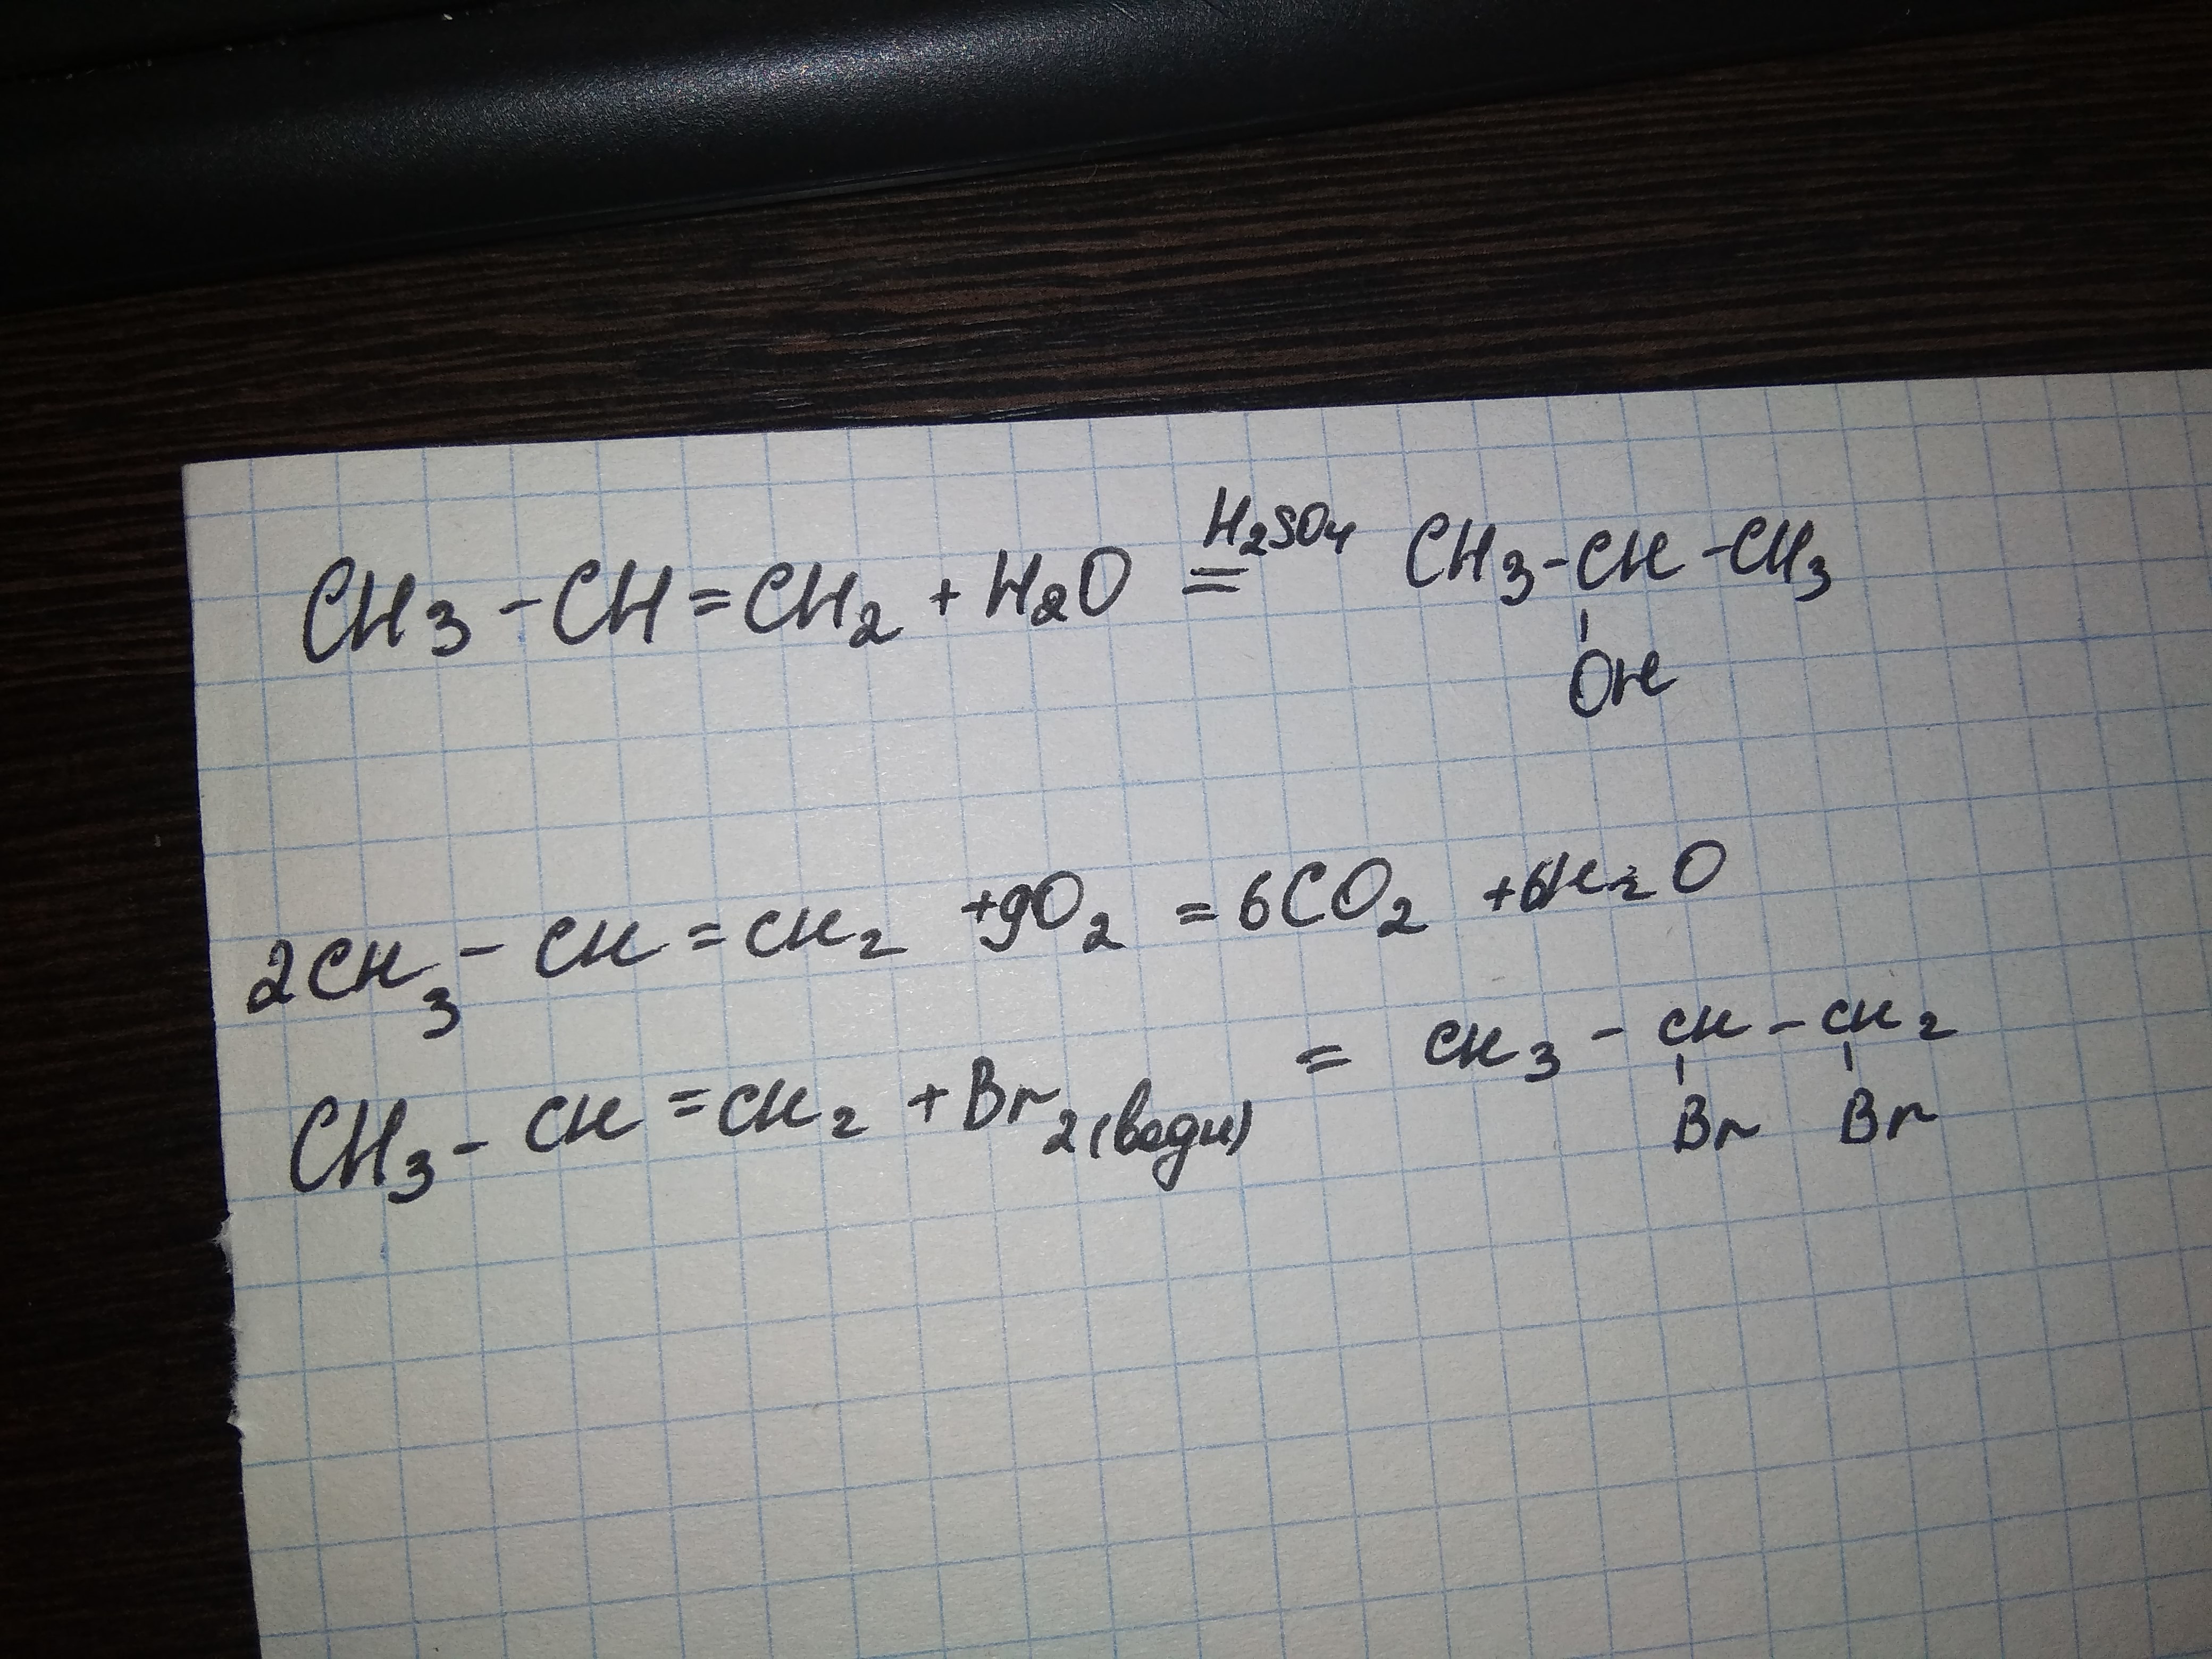 CH3-CH=CH2+H2O = H2SO4 CH3-CH-CH3
OH
2CH3-CH=CH2+9O2=6CO2+6H2O
CH3-CH=CH2+Br2(водн)=CH3-CH-CH2
Br Br